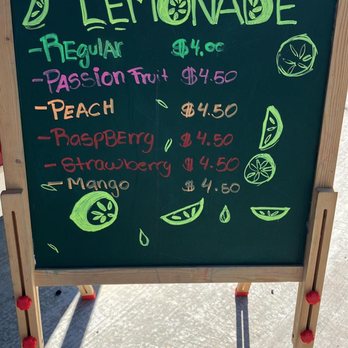 LEMONADE
-REgulAR $4.00
-PAssioN FRuit $4.50
-PEACH $4.50
-RaspBERRy $4.50
-StRawbeRRy $4.50
-Mango $4.50